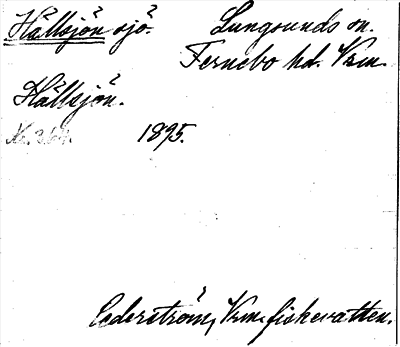 Hållsjön sjö. Lungsunds sn.
Fernebo hd. Vrm.
Hållsjön.
1895.
Cederström, Vrm. fiskevatten.